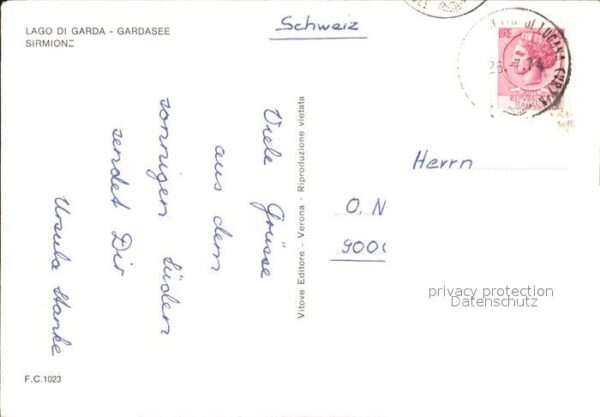 LAGO DI GARDA - GARDASEE
SIRMIONE
Schweiz
Viele Grüsse
aus dem
sonnigen Süden
sendet Dir
Ursula Hanke
Vitove Editore - Verona - Riproduzione vietata
Herrn
O. N
9000
privacy protection
Datenschutz
F.C.1023